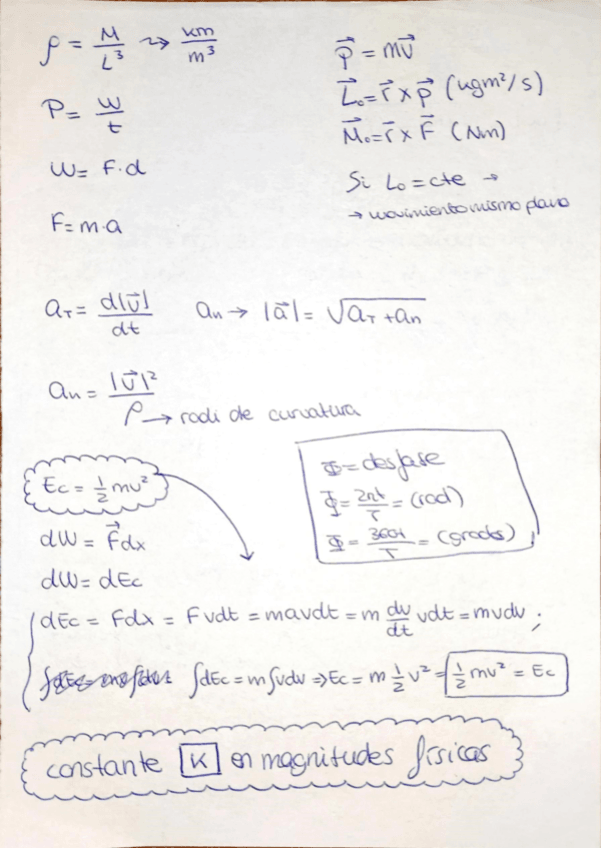 ρ = M/L³ ⇝ km/m³
P = W/t
W = F·d
F = m·a
p⃗ = mv⃗
L⃗₀ = r⃗ × p⃗ (kgm²/s)
M⃗₀ = r⃗ × F⃗ (Nm)
Si L₀ = cte →
→ movimiento mismo plano
a_T = d|v⃗|/dt   a_n → |a⃗| = √(a_T + a_n)
a_n = |v⃗|²/ρ → radi de curvatura
Ec = ½ mv²
Φ = desfase
Φ = 2πt/T = (rad)
Φ = 360t/T = (grados)
dW = F⃗dx
dW = dEc
dEc = Fdx = Fvdt = mavdt = m dv/dt vdt = mvdv ;
∫dEc = m∫vdv ⇒ Ec = m ½ v² = ½ mv² = Ec
constante K en magnitudes físicas